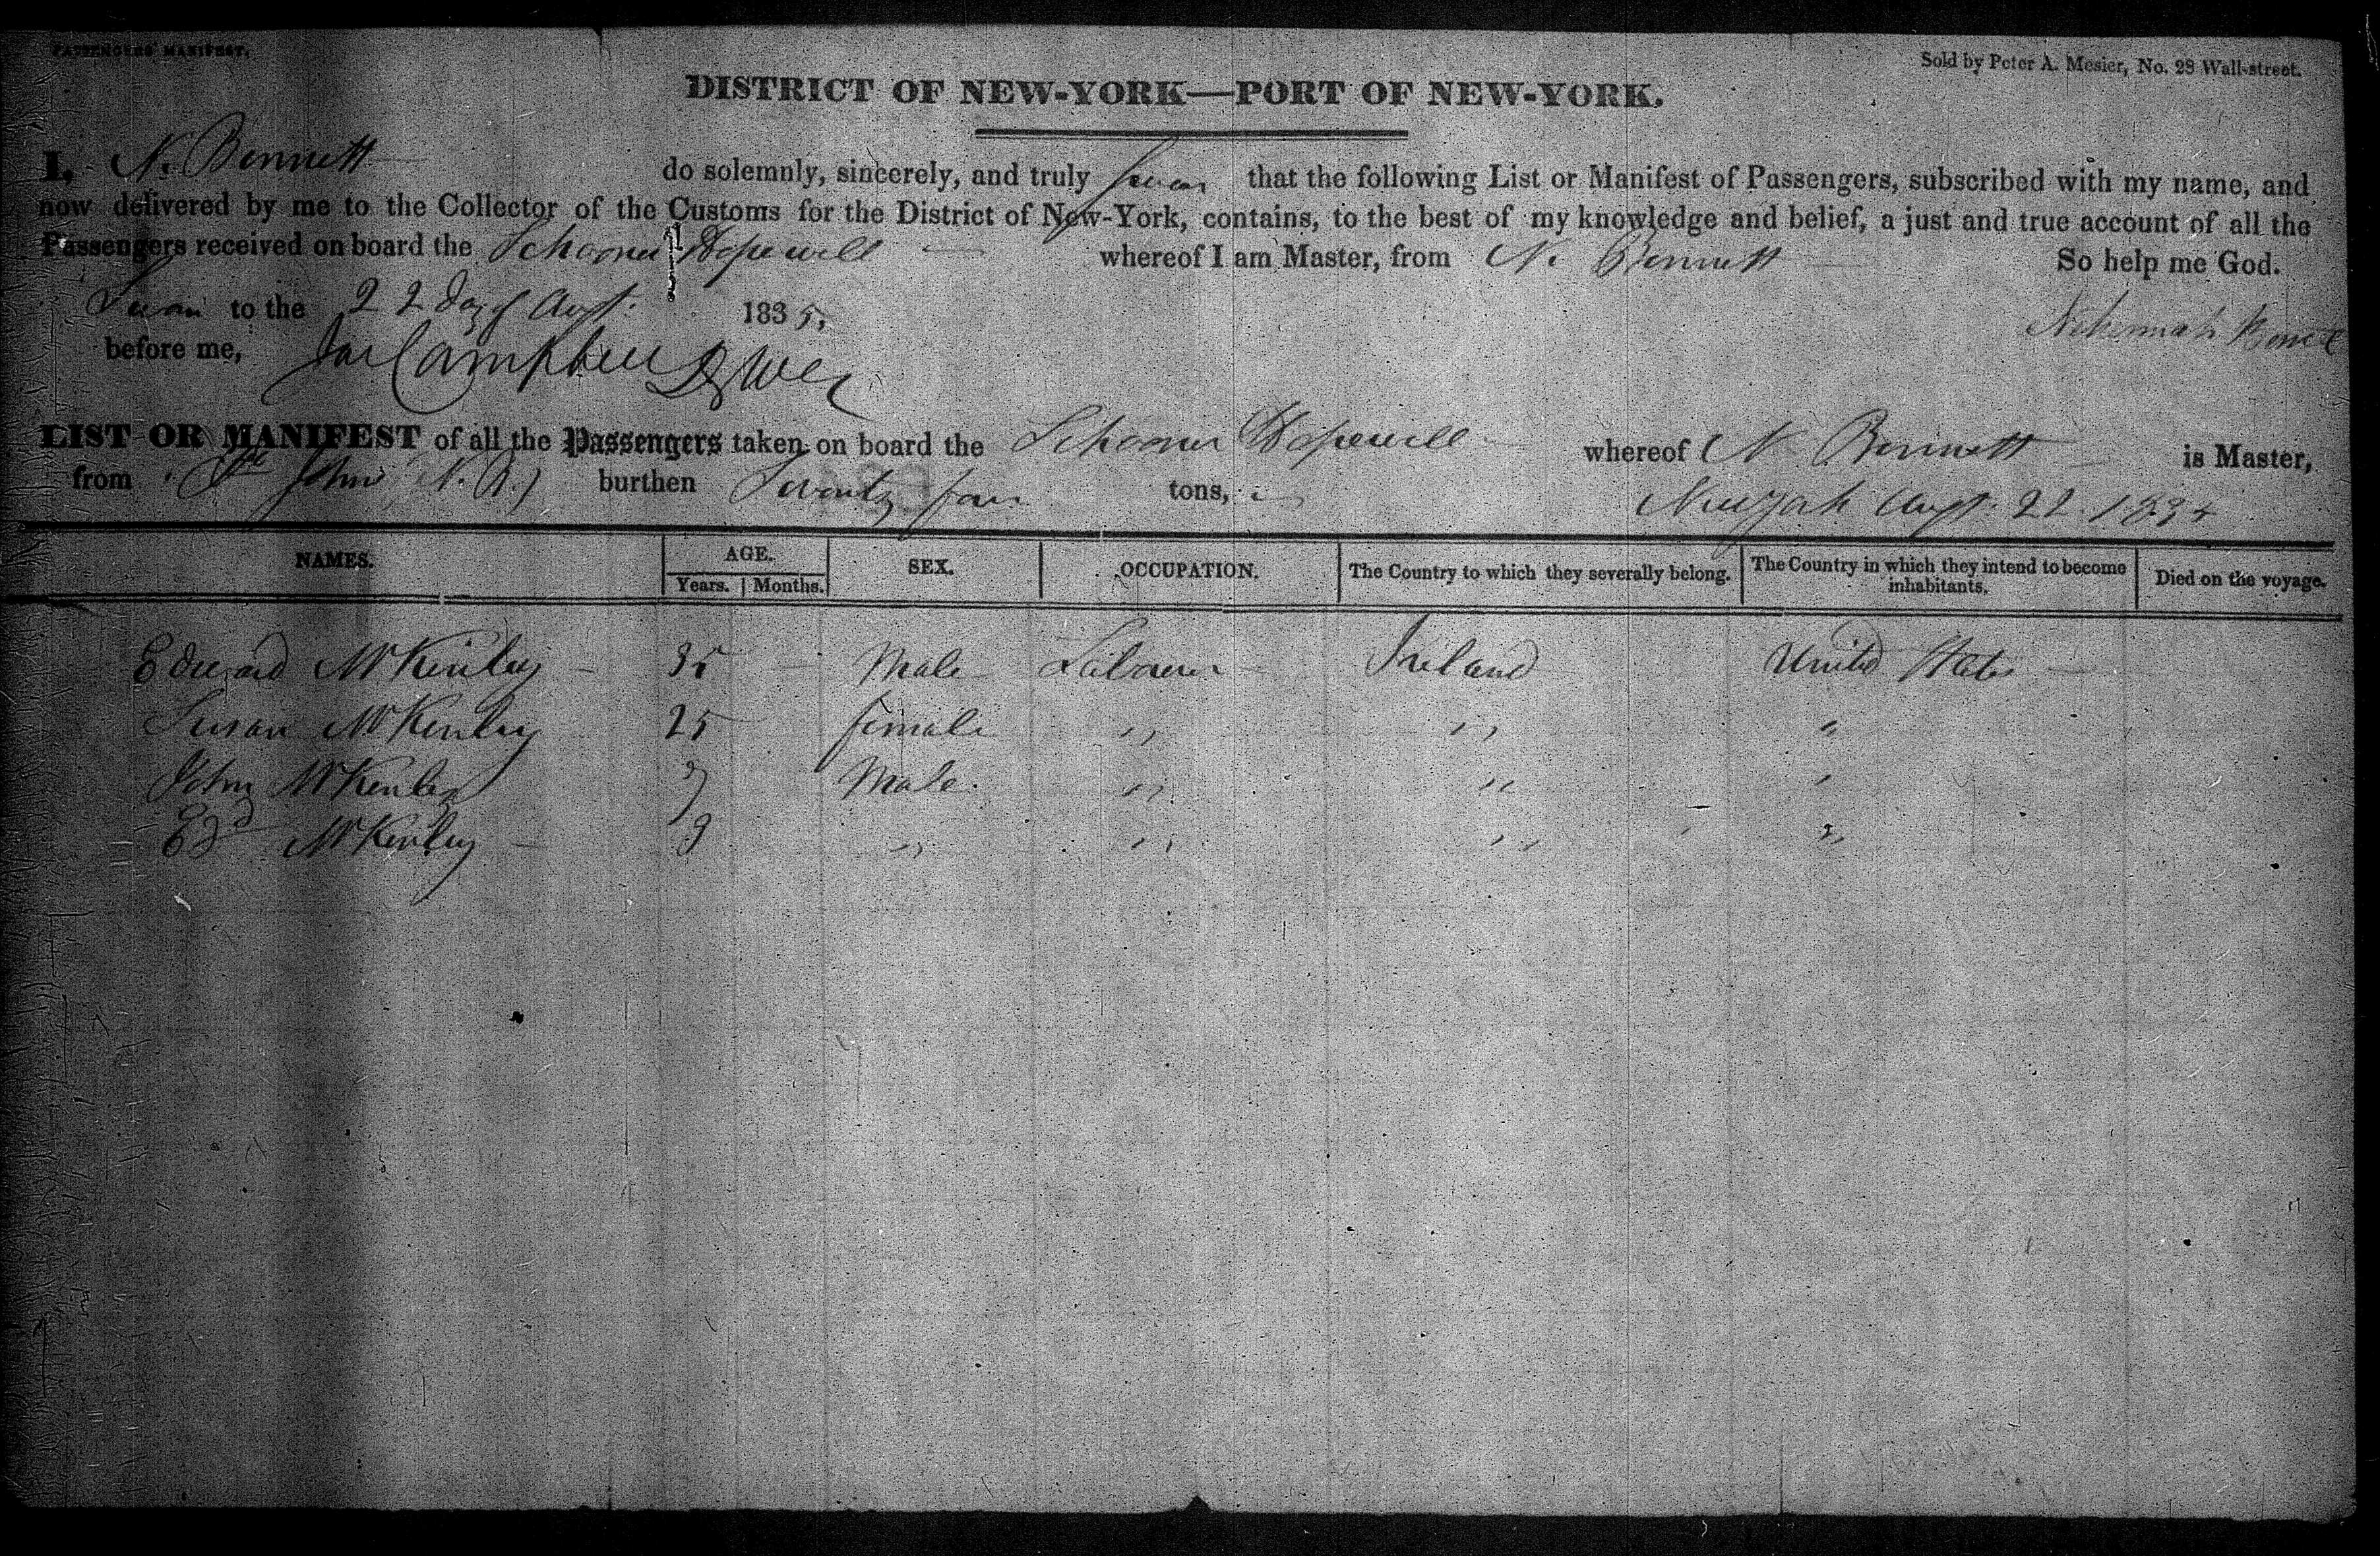 PASSENGERS' MANIFEST.
Sold by Peter A. Mesier, No. 28 Wall-street.
DISTRICT OF NEW-YORK—PORT OF NEW-YORK.
I, N. Bennett do solemnly, sincerely, and truly swear that the following List or Manifest of Passengers, subscribed with my name, and
now delivered by me to the Collector of the Customs for the District of New-York, contains, to the best of my knowledge and belief, a just and true account of all the
Passengers received on board the Schooner Hopewell whereof I am Master, from N. Bennett So help me God.
Sworn to the 22 day of Augt. 1835,
Nehemiah
before me, Campbell
LIST OR MANIFEST of all the Passengers taken on board the Schooner Hopewell whereof N Bennett is Master,
from St Johns, N.B.) burthen Seventy four tons,
New York Augt. 22. 1835
NAMES. AGE. SEX. OCCUPATION. The Country to which they severally belong. The Country in which they intend to become inhabitants. Died on the voyage.
Years. Months.
Edward McKinley 35 Male Labourer Ireland United States
Susan McKinley 25 female " " "
John McKinley 7 Male. " " "
Edd McKinley 3 " " " "